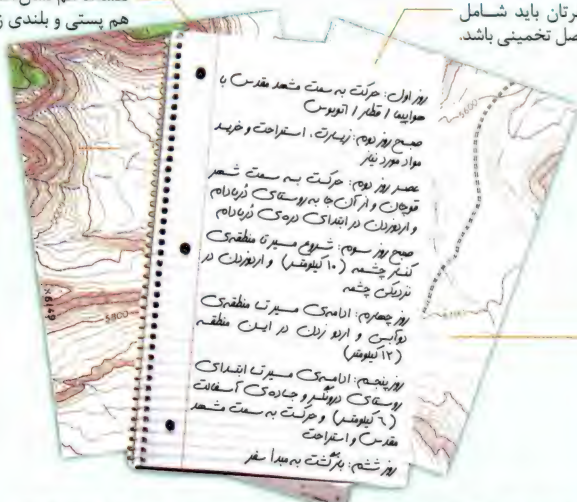 رتان باید شامل
صل تخمینی باشد.
هم پستی و بلندی ز
روز اول: حرکت به سمت مشهد مقدس با
هواپیما / قطار / اتوبوس
صبح روز دوم: زیارت، استراحت و خرید
مواد مورد نیاز
عصر روز دوم: حرکت به سمت شهر
قوچان و از آن جا به روستای دُربادام
و اردوزدن در ابتدای دره‌ی دُربادام
صبح روز سوم: شروع مسیر تا منطقه‌ی
کنسار چشمه (۱۰ کیلومتر) و اردوزدن در
نزدیکی چشمه
روز چهارم: ادامه‌ی مسیر تا منطقه‌ی
دوآبی و اردو زدن در این منطقه
(۱۲ کیلومتر)
روز پنجم: ادامه‌ی مسیر تا ابتدای
روستای درونگر و جاده‌ی آسفالت
(۶ کیلومتر) و حرکت به سمت مشهد
مقدس و استراحت
روز ششم: بازگشت به مبدأ سفر
5600
5800
×6149